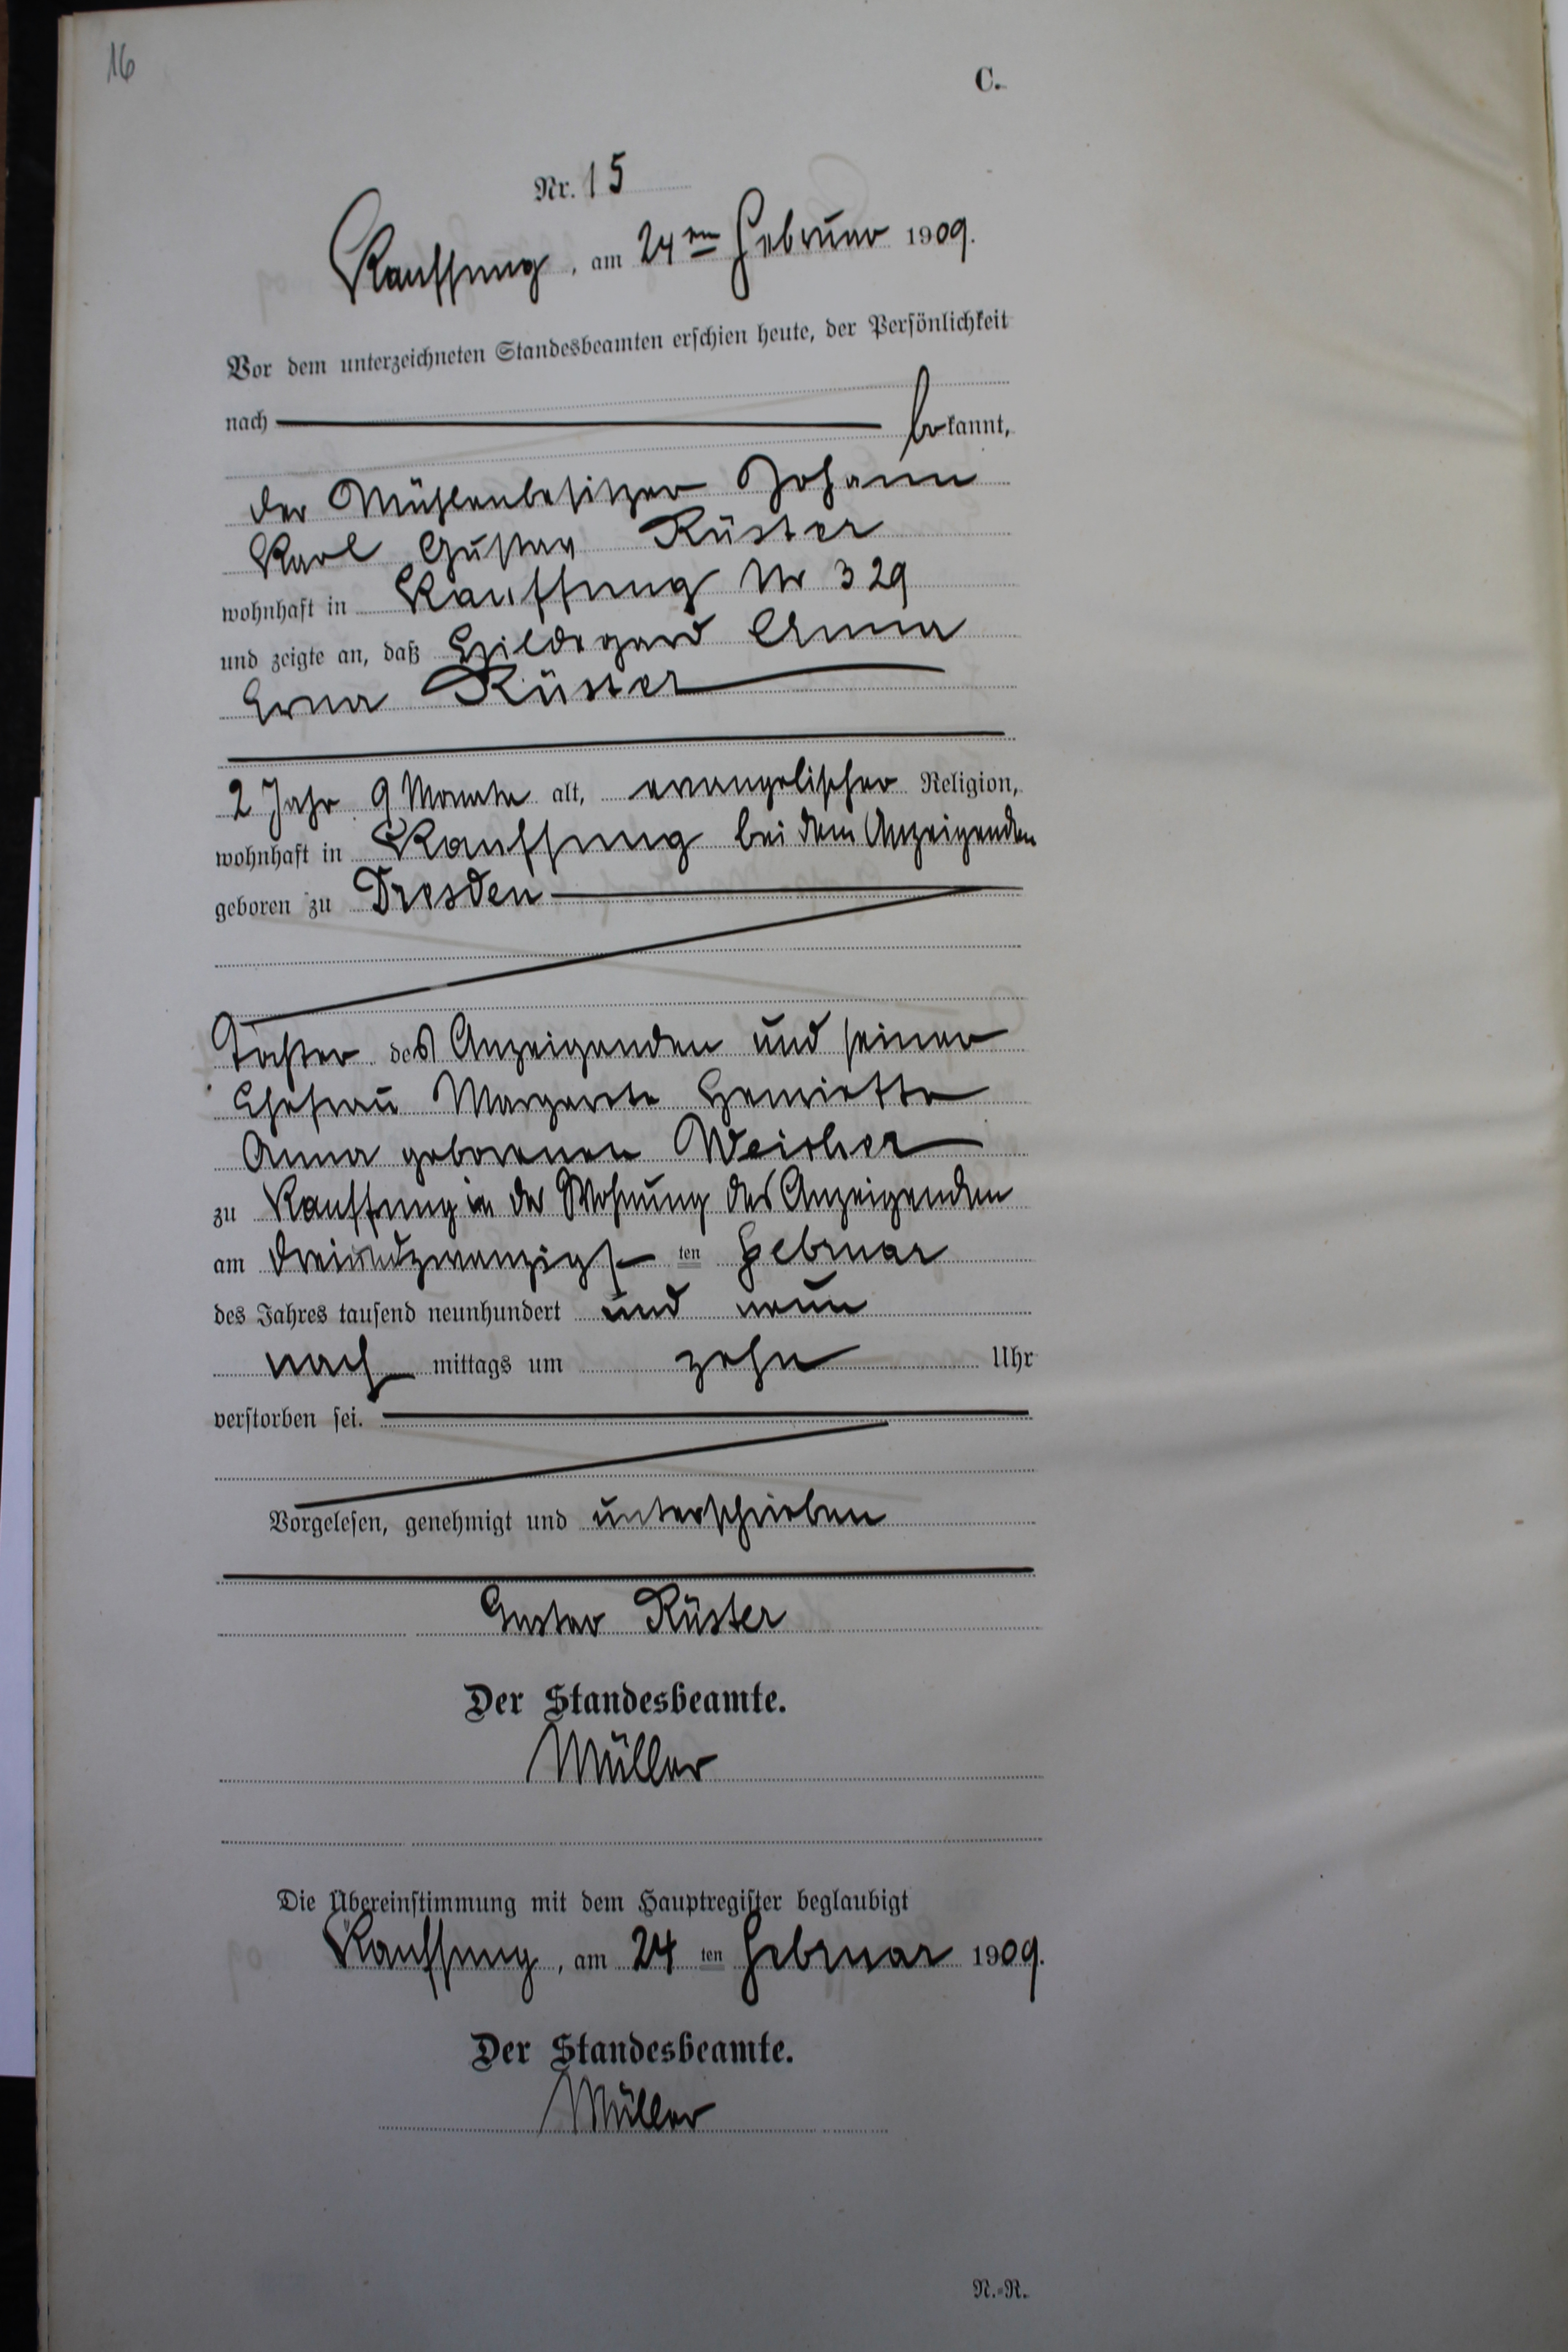 16
C.
Nr. 15
Kauffung, am 24ten Februar 1909.
Vor dem unterzeichneten Standesbeamten erschien heute, der Persönlichkeit
nach bekannt,
der Mühlenbesitzer Johann
Karl Gustav Rüster
wohnhaft in Kauffung Nr 329
und zeigte an, daß Hildegard Anna
Erna Rüster
2 Jahr 9 Monate alt, evangelischer Religion,
wohnhaft in Kauffung bei dem Anzeigenden
geboren zu Dresden
Tochter des Anzeigenden und seiner
Ehefrau Margarete Henriette
Anna geborenen
zu Kauffung in der Wohnung des Anzeigenden
am dreiundzwanzigsten Februar
des Jahres tausend neunhundert und neun
nachmittags um zehn Uhr
verstorben sei.
Vorgelesen, genehmigt und unterschrieben
Gustav Rüster
Der Standesbeamte.
Müller
Die Übereinstimmung mit dem Hauptregister beglaubigt
Kauffung, am 24ten Februar 1909.
Der Standesbeamte.
Müller
N.-R.